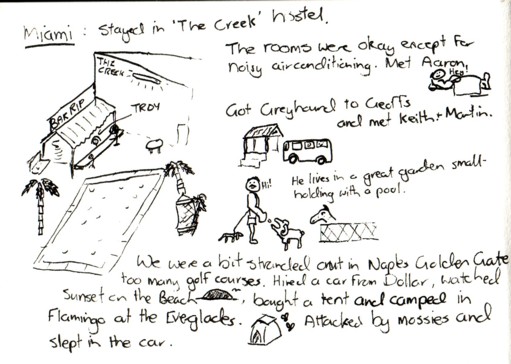 Miami: Stayed in 'The Creek' hostel.
The rooms were okay except for
noisy airconditioning. Met Aaron.
THE
CREEK
BAR RIP
TROY
Got Greyhound to Geoff's
and met Keith + Martin.
Hi!
He lives in a great garden small-
holding with a pool.
We were a bit stranded out in Naples Golden Gate
too many golf courses. Hired a car from Dollar, watched
Sunset on the Beach, bought a tent and camped in
Flamingo at the Everglades. Attacked by mossies and
slept in the car.